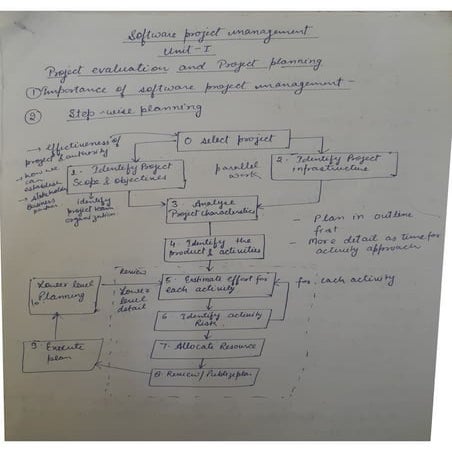 Software project management
Unit-I
Project evaluation and Project planning
① Importance of software project management -
② Step-wise planning
→ Effectiveness of
project & authority
→ how we
can
establish
→ Stakeholder
Business
0 select project
1. Identify Project
Scope & objectives
identify
project team
organization
parallel
work
2. Identify Project
infrastructure
3. Analyse
Project characteristics
- Plan in outline
first
- More detail as time for
activity approach
4. Identify the
product & activities
Review
Lower
level
detail
Lower level
10. Planning
5. Estimate effort for
each activity
for each activity
6. Identify activity
Risk
7. Allocate Resource
8. Review/Publize plan
9. Execute
plan